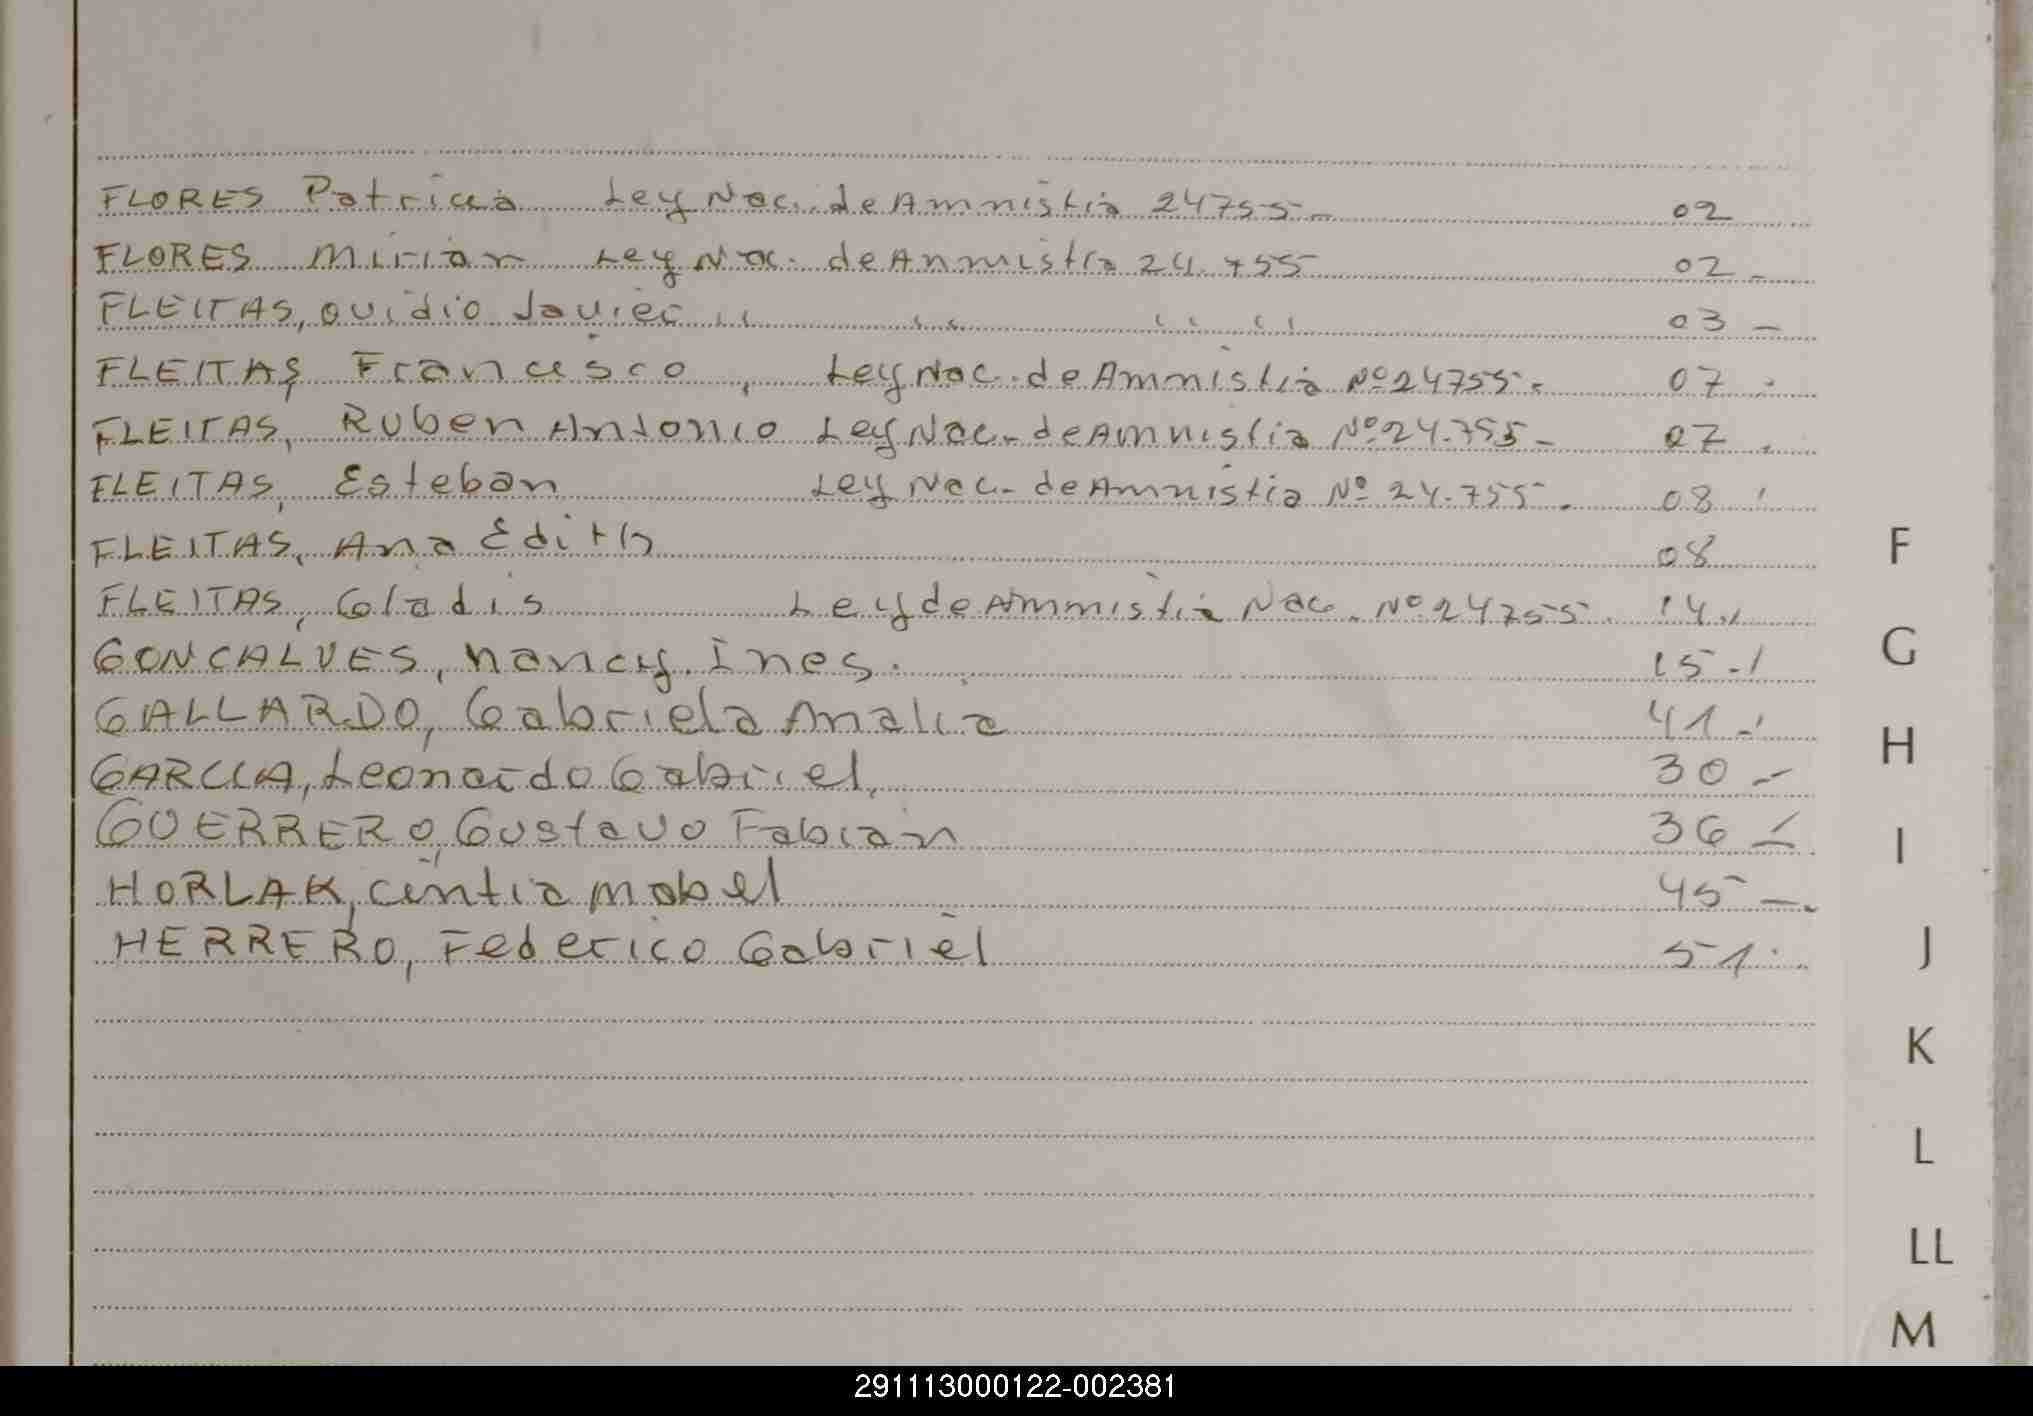 FLORES Patricia Ley Nac. de Amnistia 24755- 02
FLORES Mirian Ley Nac. de Anmistia 24.755 02-
FLEITAS, Ovidio Javier '' '' '' '' 03-
FLEITAS, Francisco, Ley Nac. de Amnistia Nº 24755. 07.
FLEITAS, Ruben Antonio Ley Nac. de Amnistia Nº 24.755- 07.
FLEITAS, Esteban Ley Nac. de Amnistia Nº 24.755. 08
FLEITAS, Ana Edith 08
FLEITAS, Gladis Ley de Ammistia Nac. Nº 24755. 14
GONCALVES, nancy Ines. 15-
GALLARDO, Gabriela Analia 41-
GARCIA, Leonardo Gabriel, 30-
GUERRERO, Gustavo Fabian 36
HORLAK, cintia mabel 45-.
HERRERO, Federico Gabriel 51.
F
G
H
I
J
K
L
LL
M
291113000122-002381